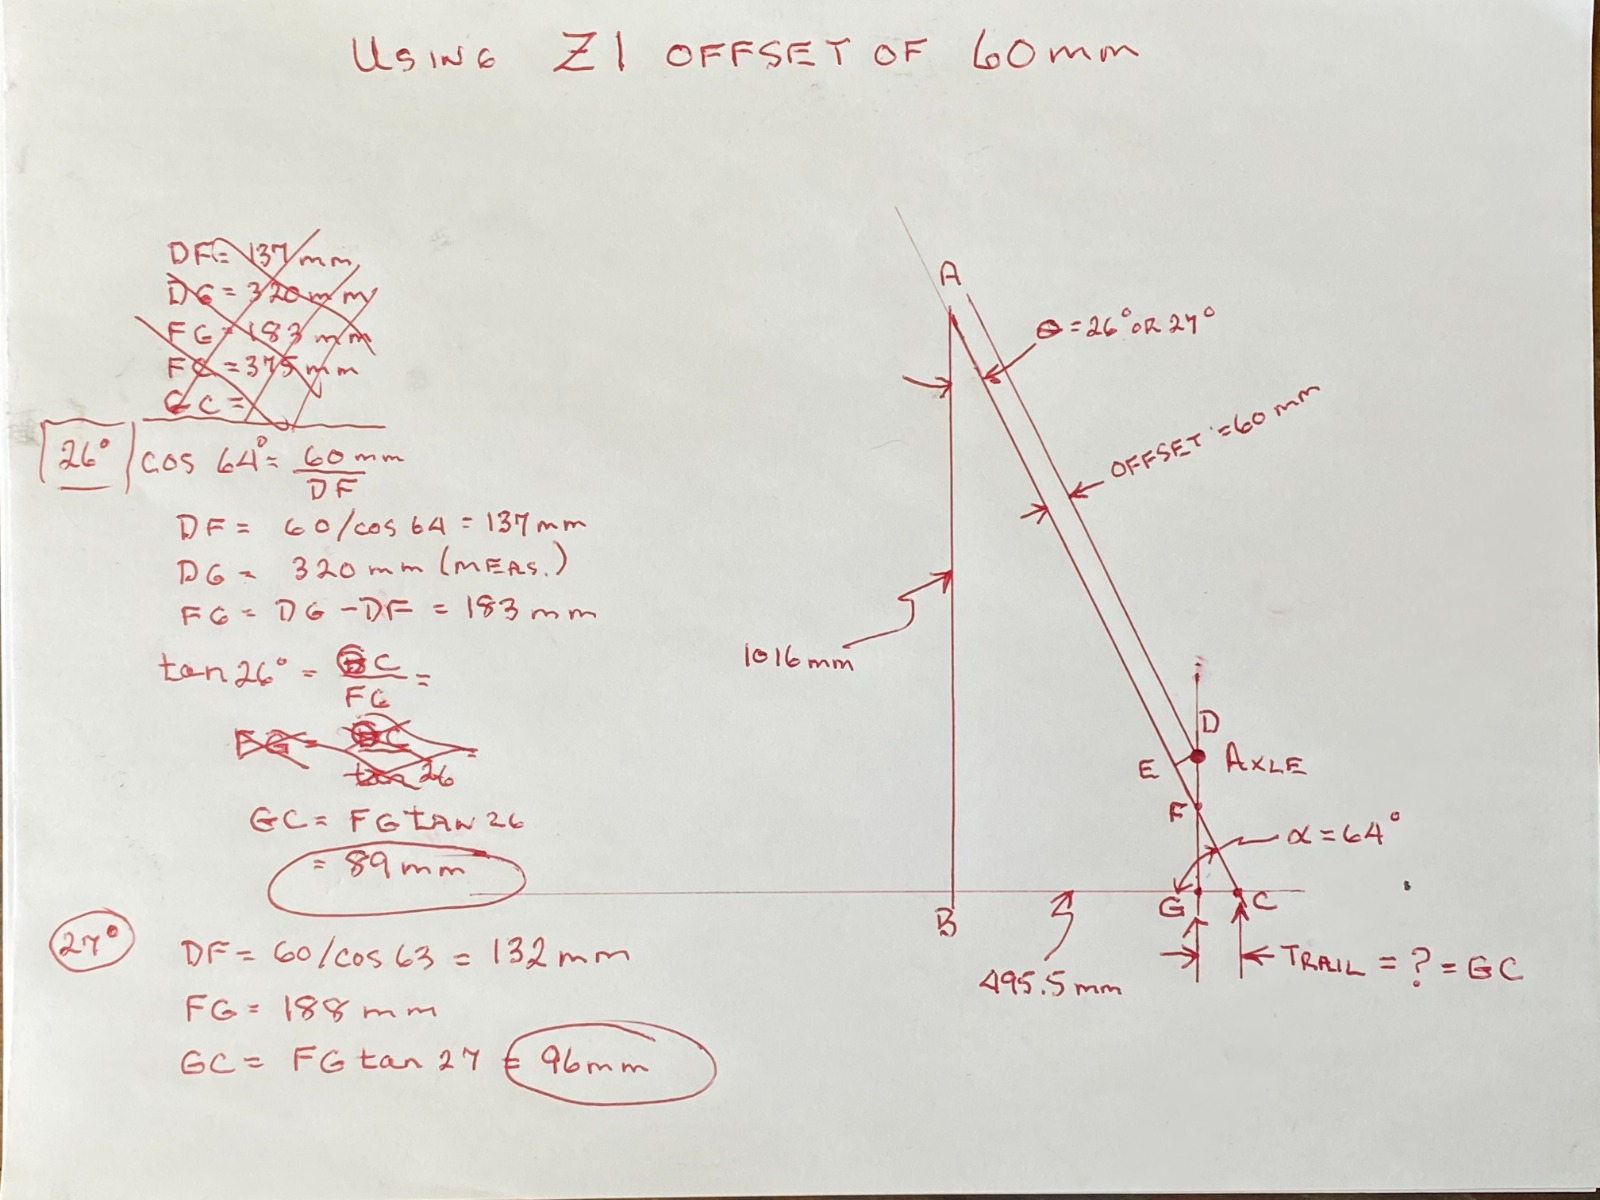 USING Z1 OFFSET OF 60mm
DF= 137mm
DG = 320mm
FG = 183 mm
FC = 375mm
GC =
26° cos 64° = 60 mm
DF
DF = 60/cos 64 = 137mm
DG = 320 mm (MEAS.)
FG = DG - DF = 183 mm
tan 26° = GC =
FG
FG = GC =
tan 26
GC = FG TAN 26
= 89 mm
27° DF = 60/cos 63 = 132 mm
FG = 188 mm
GC = FG tan 27 = 96mm
A
Θ = 26° OR 27°
OFFSET = 60 mm
1016 mm
D
E AXLE
F
α = 64°
B G C
495.5 mm
TRAIL = ? = GC